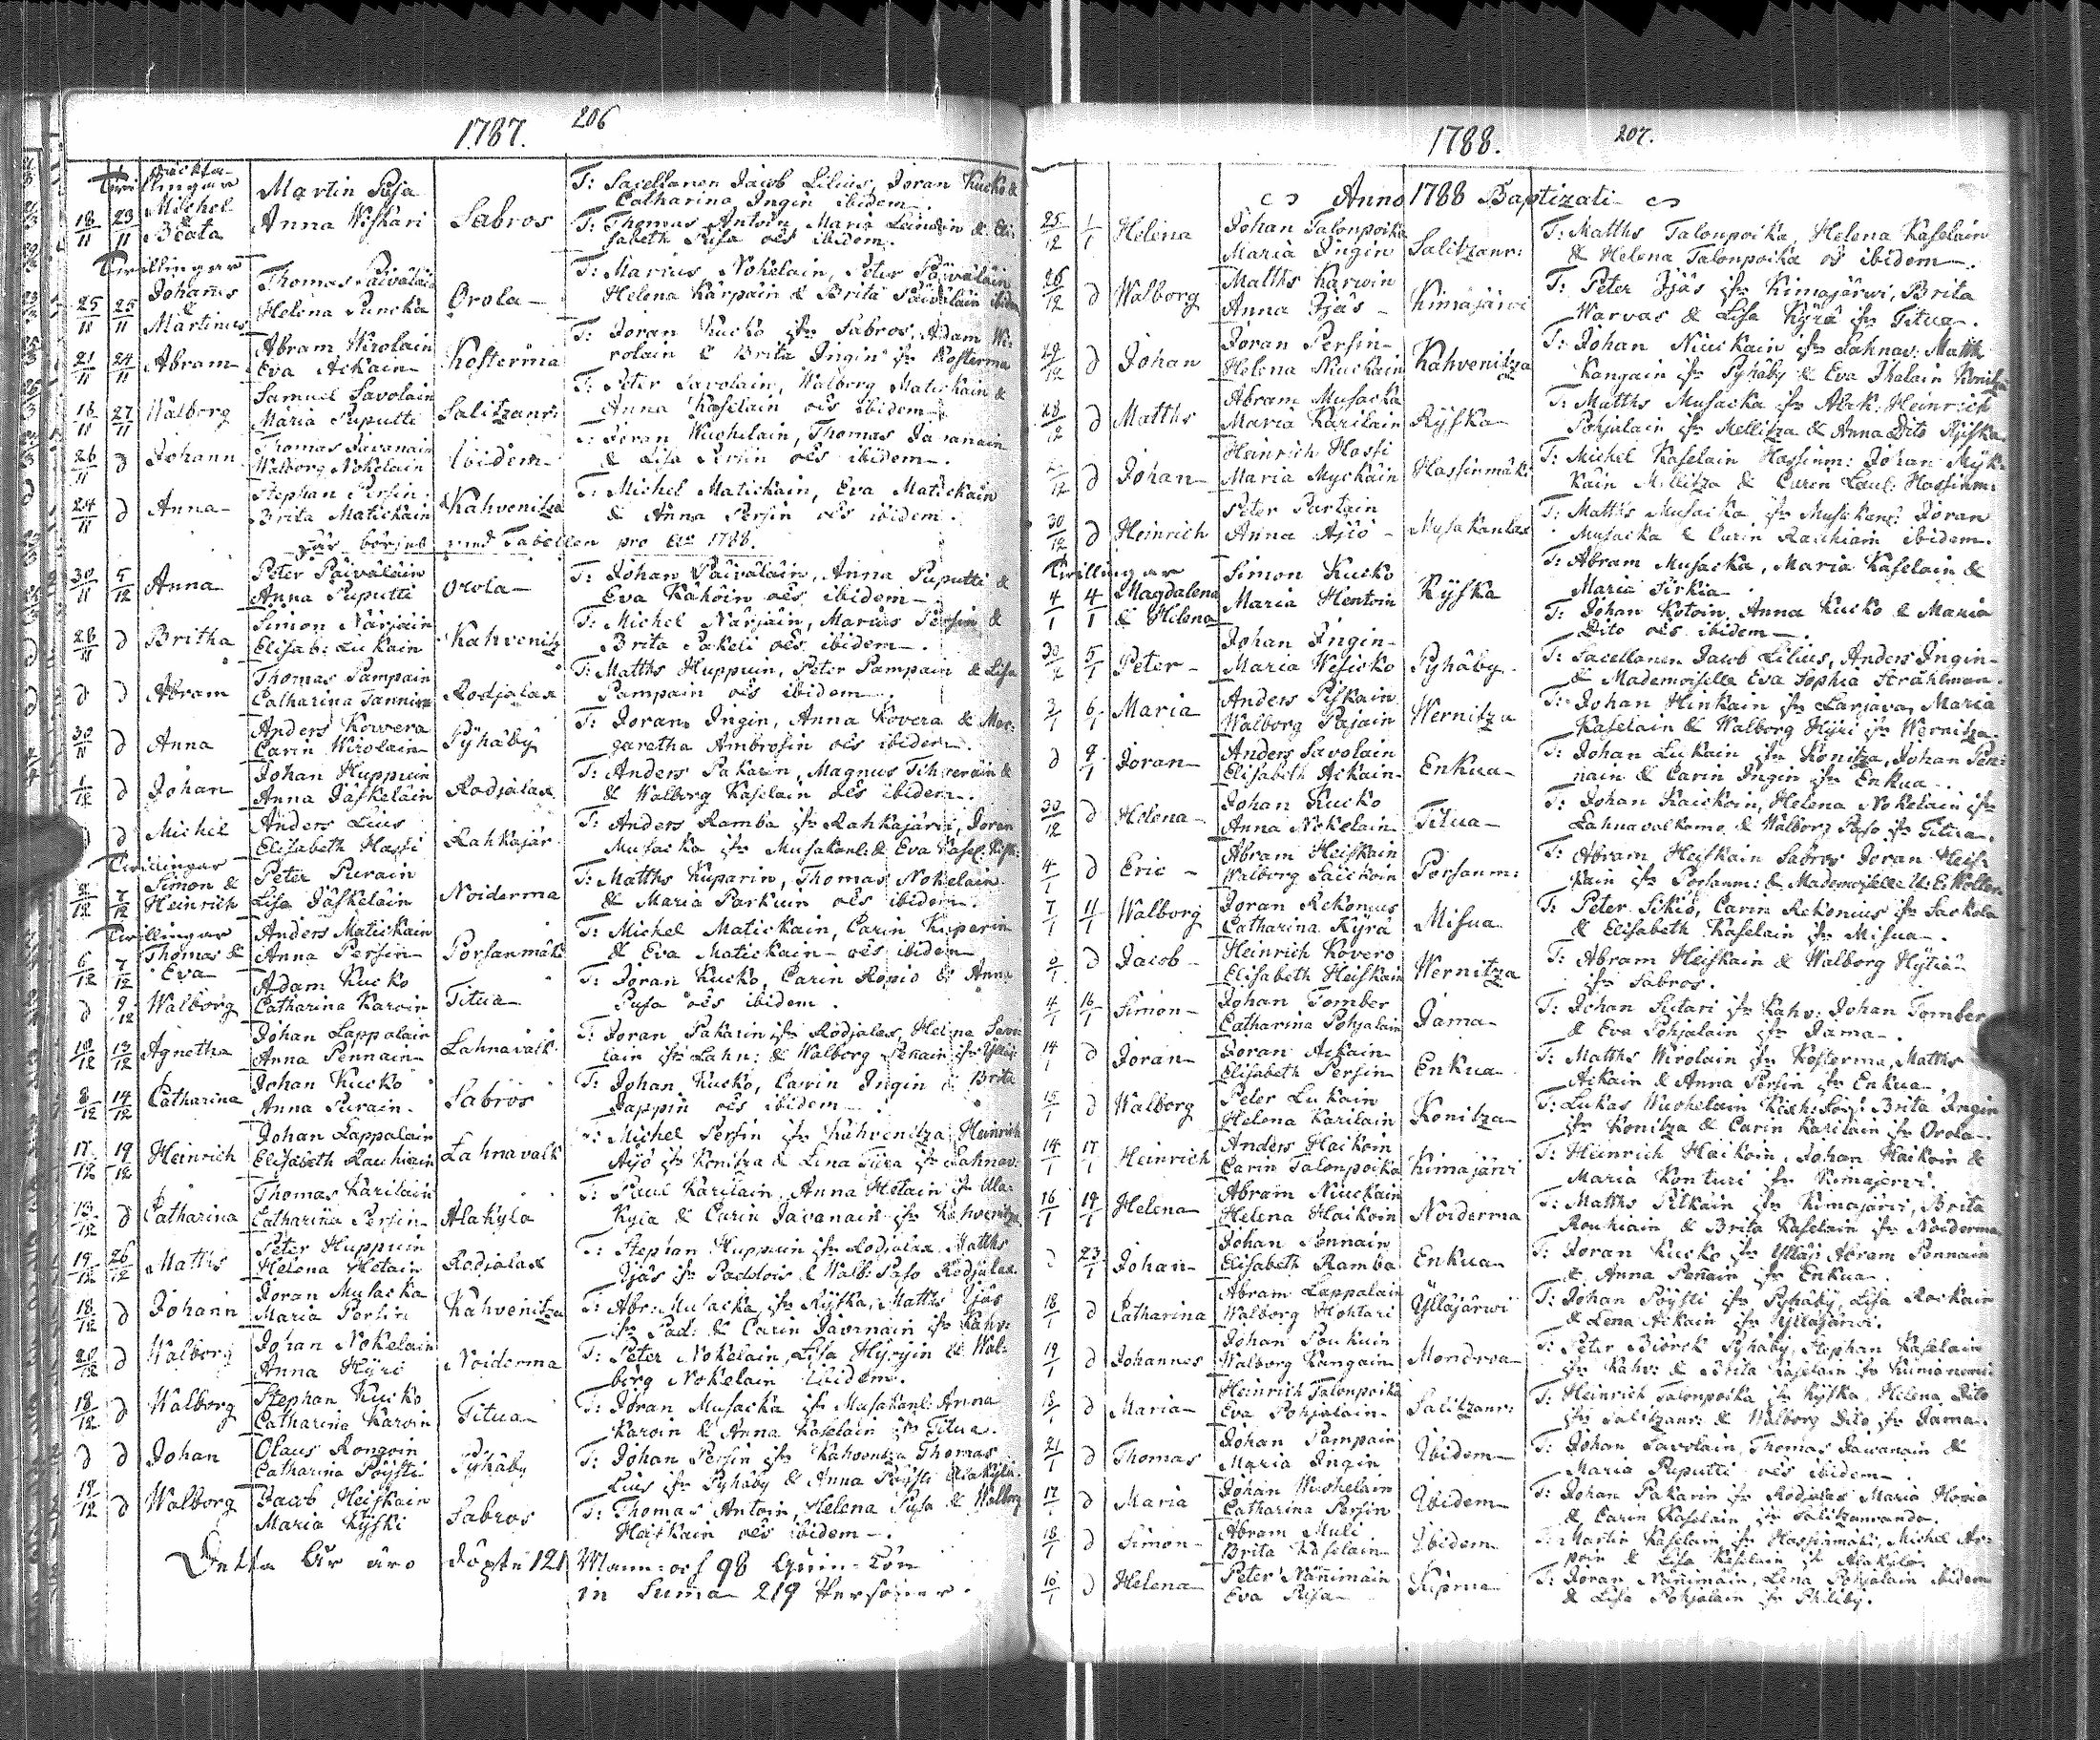 1787. 206
oäckta
Twillingar
Michel
&
Beata
18/11 23/11
Martin Pusa
Anna Wiskari
Sabros
T: Sacellanen Jacob Lilius, Joran Kucko &
Catharina Ingin ibidem.
T: Thomas Antoin, Maria Leinoin & Eli-
sabeth Pusa oes ibidem.
Twillingar
Johanes
&
Martinus
25/11 25/11
Thomas Päiväläin
Helena Puncka
Orola
T: Marius Nokelain, Peter Päiväläin
Helena Kärpäin & Brita Päiväläin ibidem
21/11 24/11 Abram
Abram Wirolain
Eva Ackain
Kosterma
T: Joran Kucko ifr Sabros, Adam Wi-
rolain & Brita Ingin ifr Kosterma
18/11 27/11 Walborg
Samuel Savolain
Maria Puputti
Salitzanr:
T: Peter Savolain, Walborg Matickain &
Anna Kaselain oes ibidem
26/11 d Johann
Thomas Javanain
Walborg Nokelain
ibidem
T: Joran Wuohelain, Thomas Javanain
& Lisa Persin oes ibidem.
24/11 d Anna
Stephan Persin
Brita Matickain
Kahvenitza
T: Michel Matickain, Eva Matickain
& Anna Persin oes ibidem.
här börjas med Tabellen pro Ao 1788.
30/11 5/12 Anna
Peter Päiväläin
Anna Puputti
Orola
T: Johan Päiväläin, Anna Puputti &
Eva Kakoin oes ibidem
28/11 d Britha
Simon Närjäin
Elisab: Lukain
Kahvenitz
T: Michel Närjäin, Marius Persin &
Brita Pakeli oes ibidem.
d d Abram
Thomas Pampain
Catharina Tannin
Rodjalax
T: Matths Huppuin, Peter Pampain & Lisa
Pampain oes ibidem
30/11 d Anna
Anders Kowera
Carin Wirolain
Pÿhäbÿ
T: Joran Ingin, Anna Kovera & Mar-
garetha Ambrosin oes ibidem.
1/12 d Johan
Johan Huppuin
Anna Jäskeläin
Rodjalax
T: Anders Pakarin, Magnus Tihverain &
& Walborg Kaselain oes ibidem.
d Michel
Anders Lius
Elisabeth Hassi
Rahkajär.
T: Anders Ramba ifr Rahkajärvi, Joran
Musacka ifr Musakanl: & Eva Kasel:
Twillingar
Simon &
Heinrich
2/12 7/12
Peter Purain
Lisa Jäskeläin
Noiderma
T: Matths Kuparin, Thomas Nokelain
& Maria Parkuin oes ibidem.
Twillingar
Thomas &
Eva
6/12 7/12
Anders Matickain
Anna Persin
Porsanmäki
T: Michel Matickain, Carin Kuparin
& Eva Matickain oes ibidem
d 9/12 Walborg
Adam Kucko
Catharina Karoin
Titua
T: Joran Kucko, Carin Ropio & Anna
Pusa oes ibidem.
10/12 13/12 Agnetha
Johan Lappalain
Anna Pennain
Lahnavalk.
T: Joran Pakarin ifr Rodjalax, Helena Savo-
lain ifr Lahn: & Walborg Penain ifr Ylläj.
8/12 14/12 Catharina
Johan Kucko
Anna Purain.
Sabros
T: Johan Kucko, Carin Ingin & Brita
Jappin oes ibidem
17/12 19/12 Heinrich
Johan Lappalain
Elisabeth Rauhiain
Lahnavalk
T: Michel Persin ifr Kahvenitza, Heinrich
Aijö ifr Konitza & Lena Türa ifr Lahnav:
13/12 d Catharina
Thomas Karilain
Catharina Persin
Alakyla
T: Paul Karilain, Anna Hotain ifr Ala-
kyla & Carin Javanain ifr Kahvenitza
19/12 26/12 Matths
Peter Huppuin
Helena Hotain
Rodjalax
T: Stephan Huppuin ifr Rodjalax, Matths
Ijäs ifr Paddois & Walb: Paso Rodjalax.
18/12 d Johann
Joran Musacka
Maria Persin
Kahvenitza
T: Abr: Musacka ifr Rÿska, Matths Ijäs
ifr Pad: & Carin Javanain ifr Kahv:
20/12 d Walborg
Johan Nokelain
Anna Hÿri
Noiderma
T: Peter Nokelain, Lisa Hyryin & Wal-
borg Nokelain ibidem.
18/12 d Walborg
Stephan Kucko
Catharina Karoin
Titua
T: Joran Musacka ifr Musakanl: Anna
Karoin & Anna Kaselain ifr Titua.
d d Johan
Olaus Rongoin
Catharina Pöÿsti
Pÿhäby
T: Johan Persin ifr Kahvenitza Thomas
Lius ifr Pyhäby & Anna Pöÿsti Alakyla.
19/12 d Walborg
Jacob Heiskain
Maria Kÿski
Sabros
T: Thomas Antoin, Helena Pusa & Walborg
Heiskain oes ibidem.
Detta År äro döpte 121 Mann: och 98 Quin: Kön
in Suma 219 Personer.
1788. 207.
Anno 1788 Baptizati
25/12 1/1 Helena
Johan Talonpoika
Maria Ingin
Salitzanr:
T: Matths Talonpoika, Helena Kaselain
& Helena Talonpoika os ibidem.
26/12 d Walborg
Matths Karwin
Anna Ijäs
Kimajärwi
T: Peter Ijäs ifr Kimajärwi, Brita
Warvas & Lisa Kÿrä ifr Titua.
29/12 d Johan
Joran Persin
Helena Niuckain
Kahvenitza
T: Johan Niuckain ifr Lahnav: Matth
Kangain ifr Pyhäby & Eva Ihalain Konitza
28/12 d Matths
Abram Musacka
Maria Karilain
Rÿska
T: Matths Musacka ifr Alak: Heinrich
Pohjalain ifr Mellitza & Anna Dito Rÿska
d Johan
Heinrich Hassi
Maria Myckäin
Hassinmäki
T: Michel Kaselain Hassinm: Johan Mÿk-
käin Mellitza & Caren Laul: Hassinm:
30/12 d Heinrich
Peter Partain
Anna Aijö
Musakanlax
T: Matths Musacka ifr Musakanl: Joran
Musacka & Carin Rauhiain ibidem.
Twillingar
Magdalena
& Helena
4/1 4/1
Simon Kucko
Maria Hentoin
Rÿska
T: Abram Musacka, Maria Kaselain &
Maria Sirkia
T: Johan Kotoin, Anna Kucko & Maria
Dito oes ibidem.
5/1 Peter
Johan Ingin
Maria Wesicko
Pyhäby
T: Sacellanen Jacob Lilius, Anders Ingin
& Mademoiselle Eva Sophia Strählman.
6/1 Maria
Anders Piskain
Walborg Pajain
Wernitza
T: Johan Hinkain ifr Larjava, Maria
Kaselain & Walborg Hÿri ifr Wernitza.
d 9/1 Joran
Anders Savolain
Elisabeth Ackain
Enkua
T: Johan Lukain ifr Konitza, Johan Pen-
nain & Carin Ingin ifr Enkua.
30/12 d Helena
Johan Kucko
Anna Nokelain
Titua
T: Johan Kaickoin, Helena Nokelain ifr
Lahnavalkama & Walborg Paso ifr Titua.
4/1 d Eric
Abram Heiskain
Walborg Saickoin
Porsanm:
T: Abram Heiskain Sabros Joran Heis-
kain ifr Porsanm: & Mademoiselle U: E: Wolten
7/1 11/1 Walborg
Joran Rekonius
Catharina Kÿrä
Misua
T: Peter Sikiö, Carin Rekonius ifr Sackola
& Elisabeth Kaselain ifr Misua.
d Jacob
Heinrich Kovero
Elisabeth Heiskain
Wernitza
T: Abram Heiskain & Walborg Hÿtiä
ifr Sabros.
4/1 16/1 Simon
Johan Tomber
Catharina Pohjalain
Jama
T: Johan Sutari ifr Kahv: Johan Tomber
& Eva Pohjalain ifr Jama.
14/1 d Joran
Joran Ackain
Elisabeth Persin
Enkua
T: Matths Wirolain ifr Kosterma, Matths
Ackain & Anna Persin ifr Enkua.
15/1 d Walborg
Peter Lukain
Helena Karilain
Konitza
T: Lukas Wuohelain Brita Ingin
ifr Konitza & Carin Karilain ifr Orola.
14/1 17/1 Heinrich
Anders Haikoin
Carin Talonpoika
Kimajärvi
T: Heinrich Haikoin, Johan Haikoin &
Maria Konturi ifr Kimajervi.
16/1 19/1 Helena
Abram Niuckain
Helena Haikoin
Noiderma
T: Matths Pitkäin ifr Kimajärvi, Brita
Rouhiain & Brita Kaselain ifr Noiderma
d 23/1 Johan
Johan Pennain
Elisabeth Ramba
Enkua
T: Joran Kucko ifr Ylläj: Abram Pennain
& Anna Penain ifr Enkua.
18/1 d Catharina
Abram Lappalain
Walborg Hohtari
Ylläjärwi
T: Johan Pöÿsti ifr Pyhäbÿ, Lisa Rockain
& Lena Ackain ifr Ylläjärvi.
19/1 d Johannes
Johan Poukuin
Walborg Kangain
Mondroa
T: Peter Biörck Pyhäby, Stephan Kaselain
ifr Kahv: & Brita Kaselain ifr
18/1 d Maria
Heinrich Talonpoika
Eva Pohjalain
Salitzanr:
T: Heinrich Talonpoika ifr Rÿska, Helena Dito
ifr Salitzanr: & Walborg Dito ifr Jama.
21/1 d Thomas
Johan Pampain
Maria Ingin
Ibidem
T: Johan Savolain, Thomas Jawanain &
Maria Puputti oes ibidem
17/1 d Maria
Johan Wuohelain
Catharina Persin
Ibidem
T: Johan Pakarin ifr Rodjalax Maria
& Carin Kaselain ifr Salitzanranda.
18/1 d Simon
Abram Muli
Brita Kaselain
Ibidem
T: Martin Kaselain ifr Hassinmäki, Michel
& Lisa Kaselain ifr Alakyla.
16/1 d Helena
Peter Nänimäin
Eva Pusa
Kuprua
T: Joran Nänimäin, Lena Pohjalain ibidem
& Lisa Pohjalain ifr Philiby.